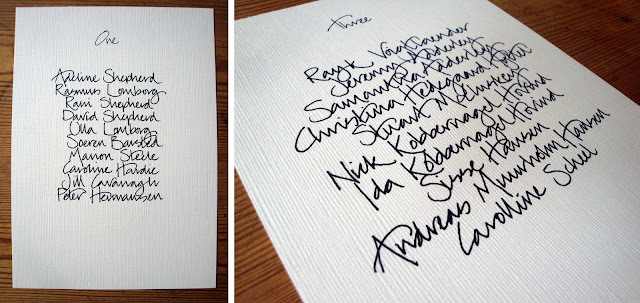 One
Adeline Shepherd
Rasmus Lomborg
Rani Shepherd
David Shepherd
Ulla Lomborg
Soeren Barsted
Manon Steele
Caroline Hardie
Jill Cavanagh
Peter Hermanssen
Three
Rayk Voigtlaender
Jeremy Maderley
Samantha Maderley
Christina Hedegaard
Stuart
Nick Koldernagel Hovind
Ida Koldernagel Hovind
Sisse Hansen
Andreas Munkholm Hansen
Caroline Schiel